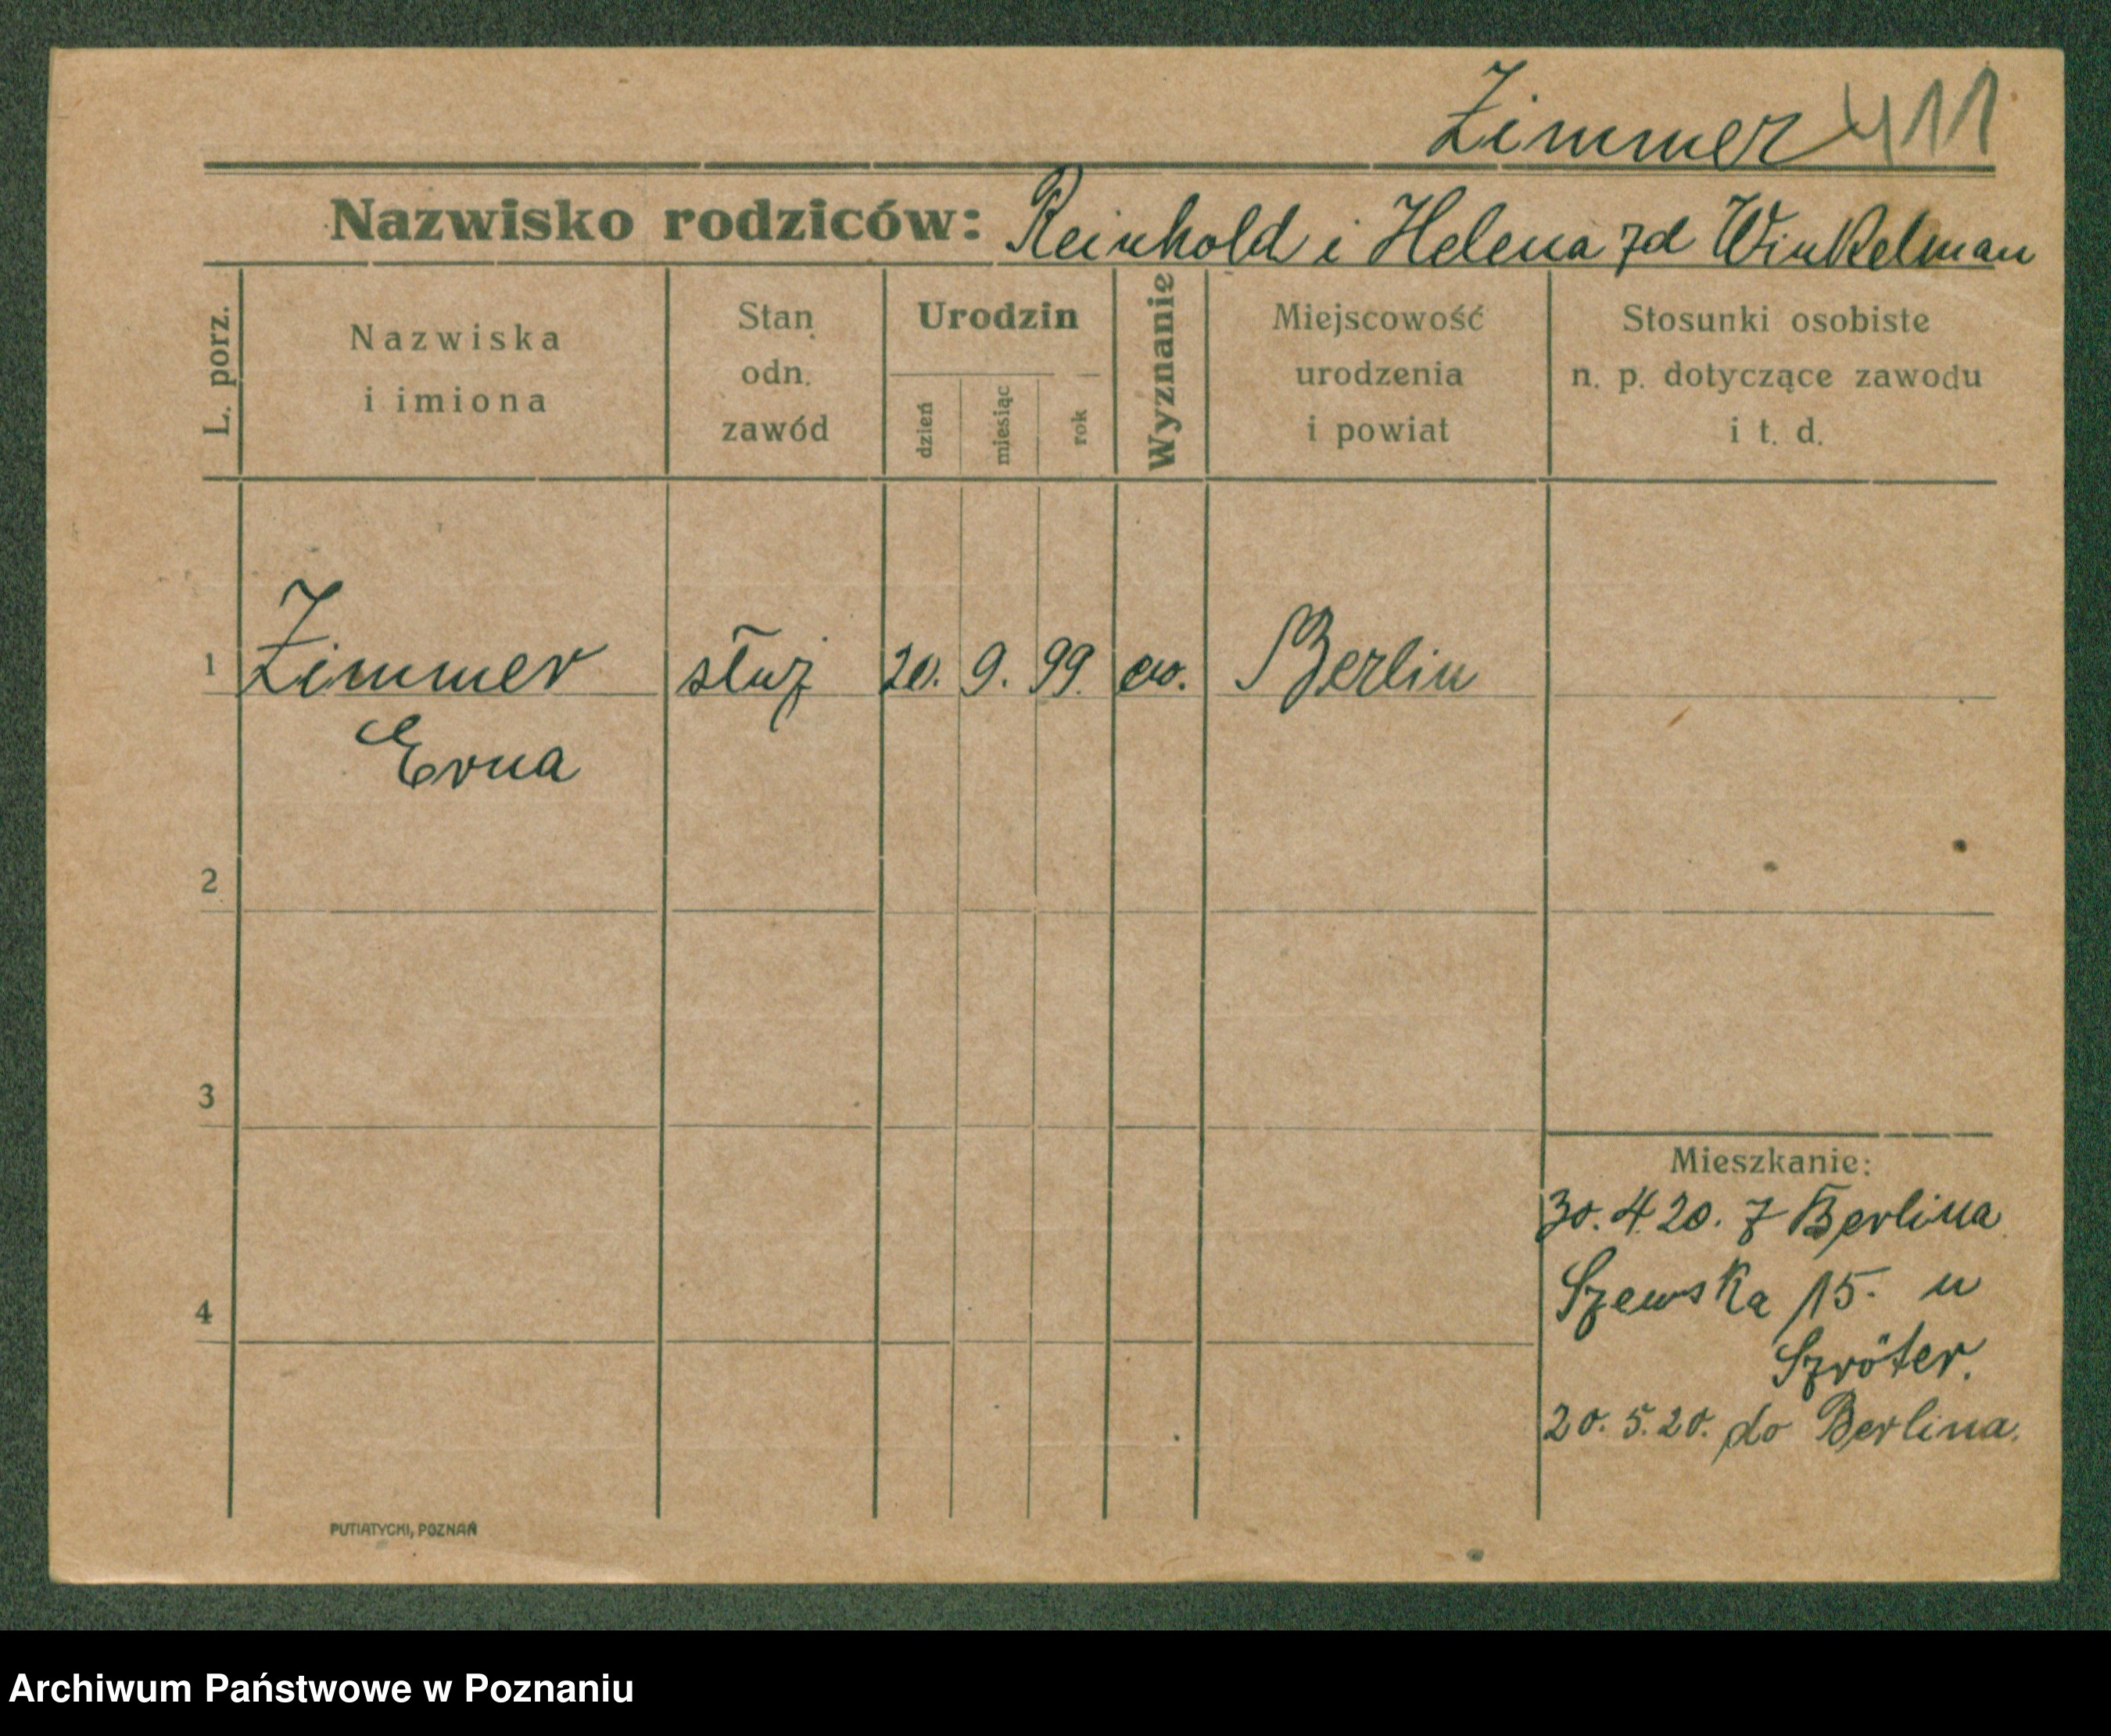 Zimmer 411
Nazwisko rodziców: Reinhold i Helena zd Winkelman
L. porz.
Nazwiska
i imiona
Stan
odn.
zawód
Urodzin
dzień
miesiąc
rok
Wyznanie
Miejscowość
urodzenia
i powiat
Stosunki osobiste
n. p. dotyczące zawodu
i t. d.
1 Zimmer służ 20. 9. 99. ew. Berlin
Erna
2
3
4
Mieszkanie:
30.4.20. z Berlina
Szewska 15. u
Szröter.
20.5.20. do Berlina.
PUTIATYCKI, POZNAŃ
Archiwum Państwowe w Poznaniu